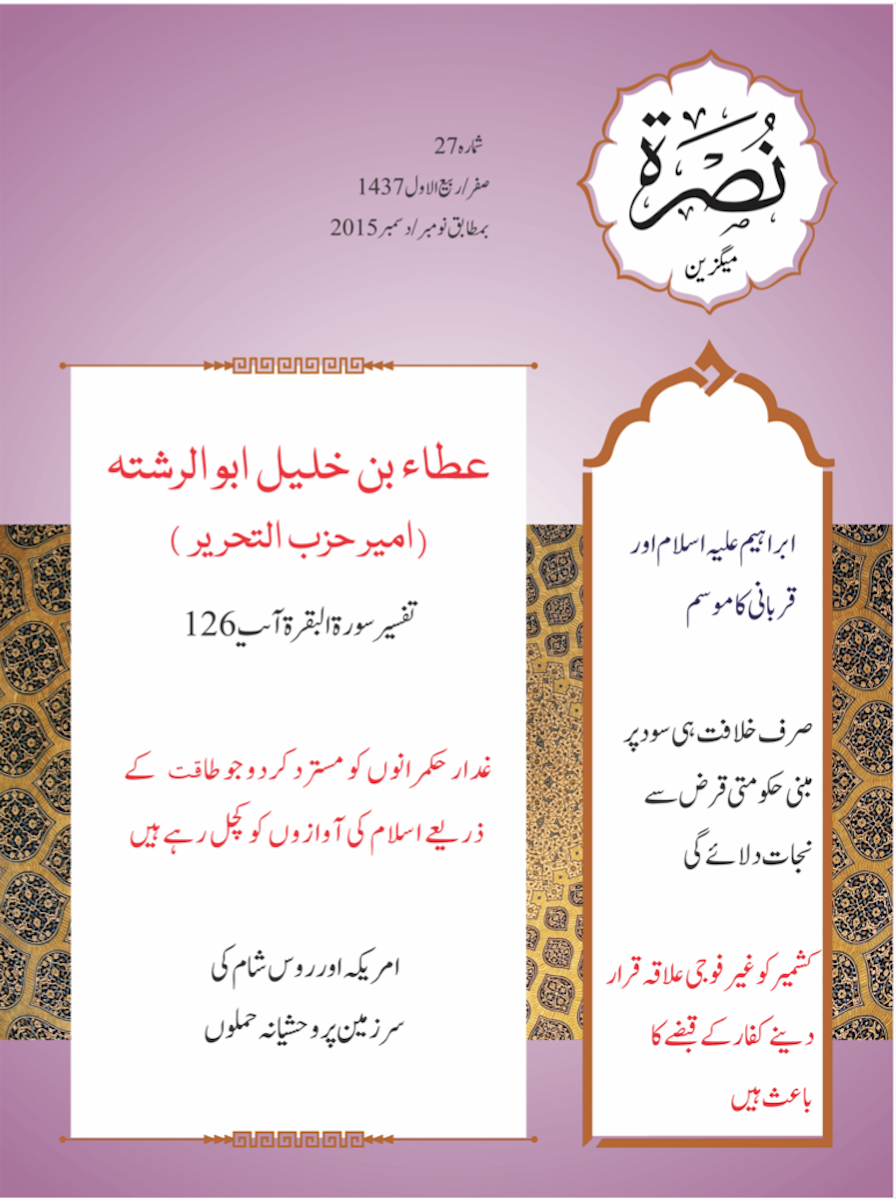 نُصرۃ
میگزین
شمارہ 27
صفر/ربیع الاول 1437
بمطابق نومبر/دسمبر 2015
ابراہیم علیہ اسلام اور
قربانی کا موسم
صرف خلافت ہی سود پر
مبنی حکومتی قرض سے
نجات دلائے گی
کشمیر کو غیر فوجی علاقہ قرار
دینے کفار کے قبضے کا
باعث ہیں
عطاء بن خلیل ابو الرشتہ
(امیر حزب التحریر )
تفسیر سورۃ البقرۃ آیت 126
غدار حکمرانوں کو مسترد کر دو جو طاقت کے
ذریعے اسلام کی آوازوں کو کچل رہے ہیں
امریکہ اور روس شام کی
سرزمین پر وحشیانہ حملوں